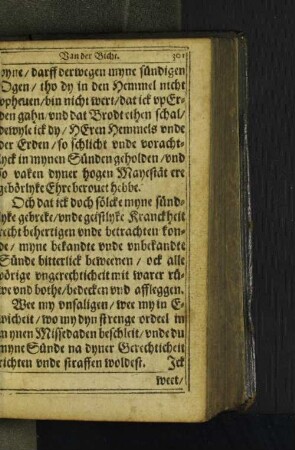 Van der Bicht. 301
myne / darff derwegen myne sündigen
Ogen / tho dy in den Hemmel nicht
vpheuen / bin nicht wert / dat ick vp Er-
den gahn / vnd dat Brodt ethen schal /
dewyle ick dy / HEren Hemmels vnde
der Erden / so schlicht vnde voracht-
lyck in mynen Sünden geholden / vnd
so vaken dyner hogen Mayestät ere
gebörlyke Ehre berouet hebbe.
Och dat ick doch sölcke myne sünd-
lyke gebreke / vnde geistlyke Kranckheit
recht behertigen vnde betrachten kon-
de / myne bekandte vnde vnbekandte
Sünde bitterlick beweenen / ock alle
vörige vngerechticheit mit warer rü-
we vnd bothe / bedecken vnd affleggen.
Wee my vnsaligen / wee my in E-
wicheit / wo my dyn strenge ordeel in
mynen Missedaden beschleit / vnde du
myne Sünde na dyner Gerechticheit
richten vnde straffen woldest. Ick
weet /